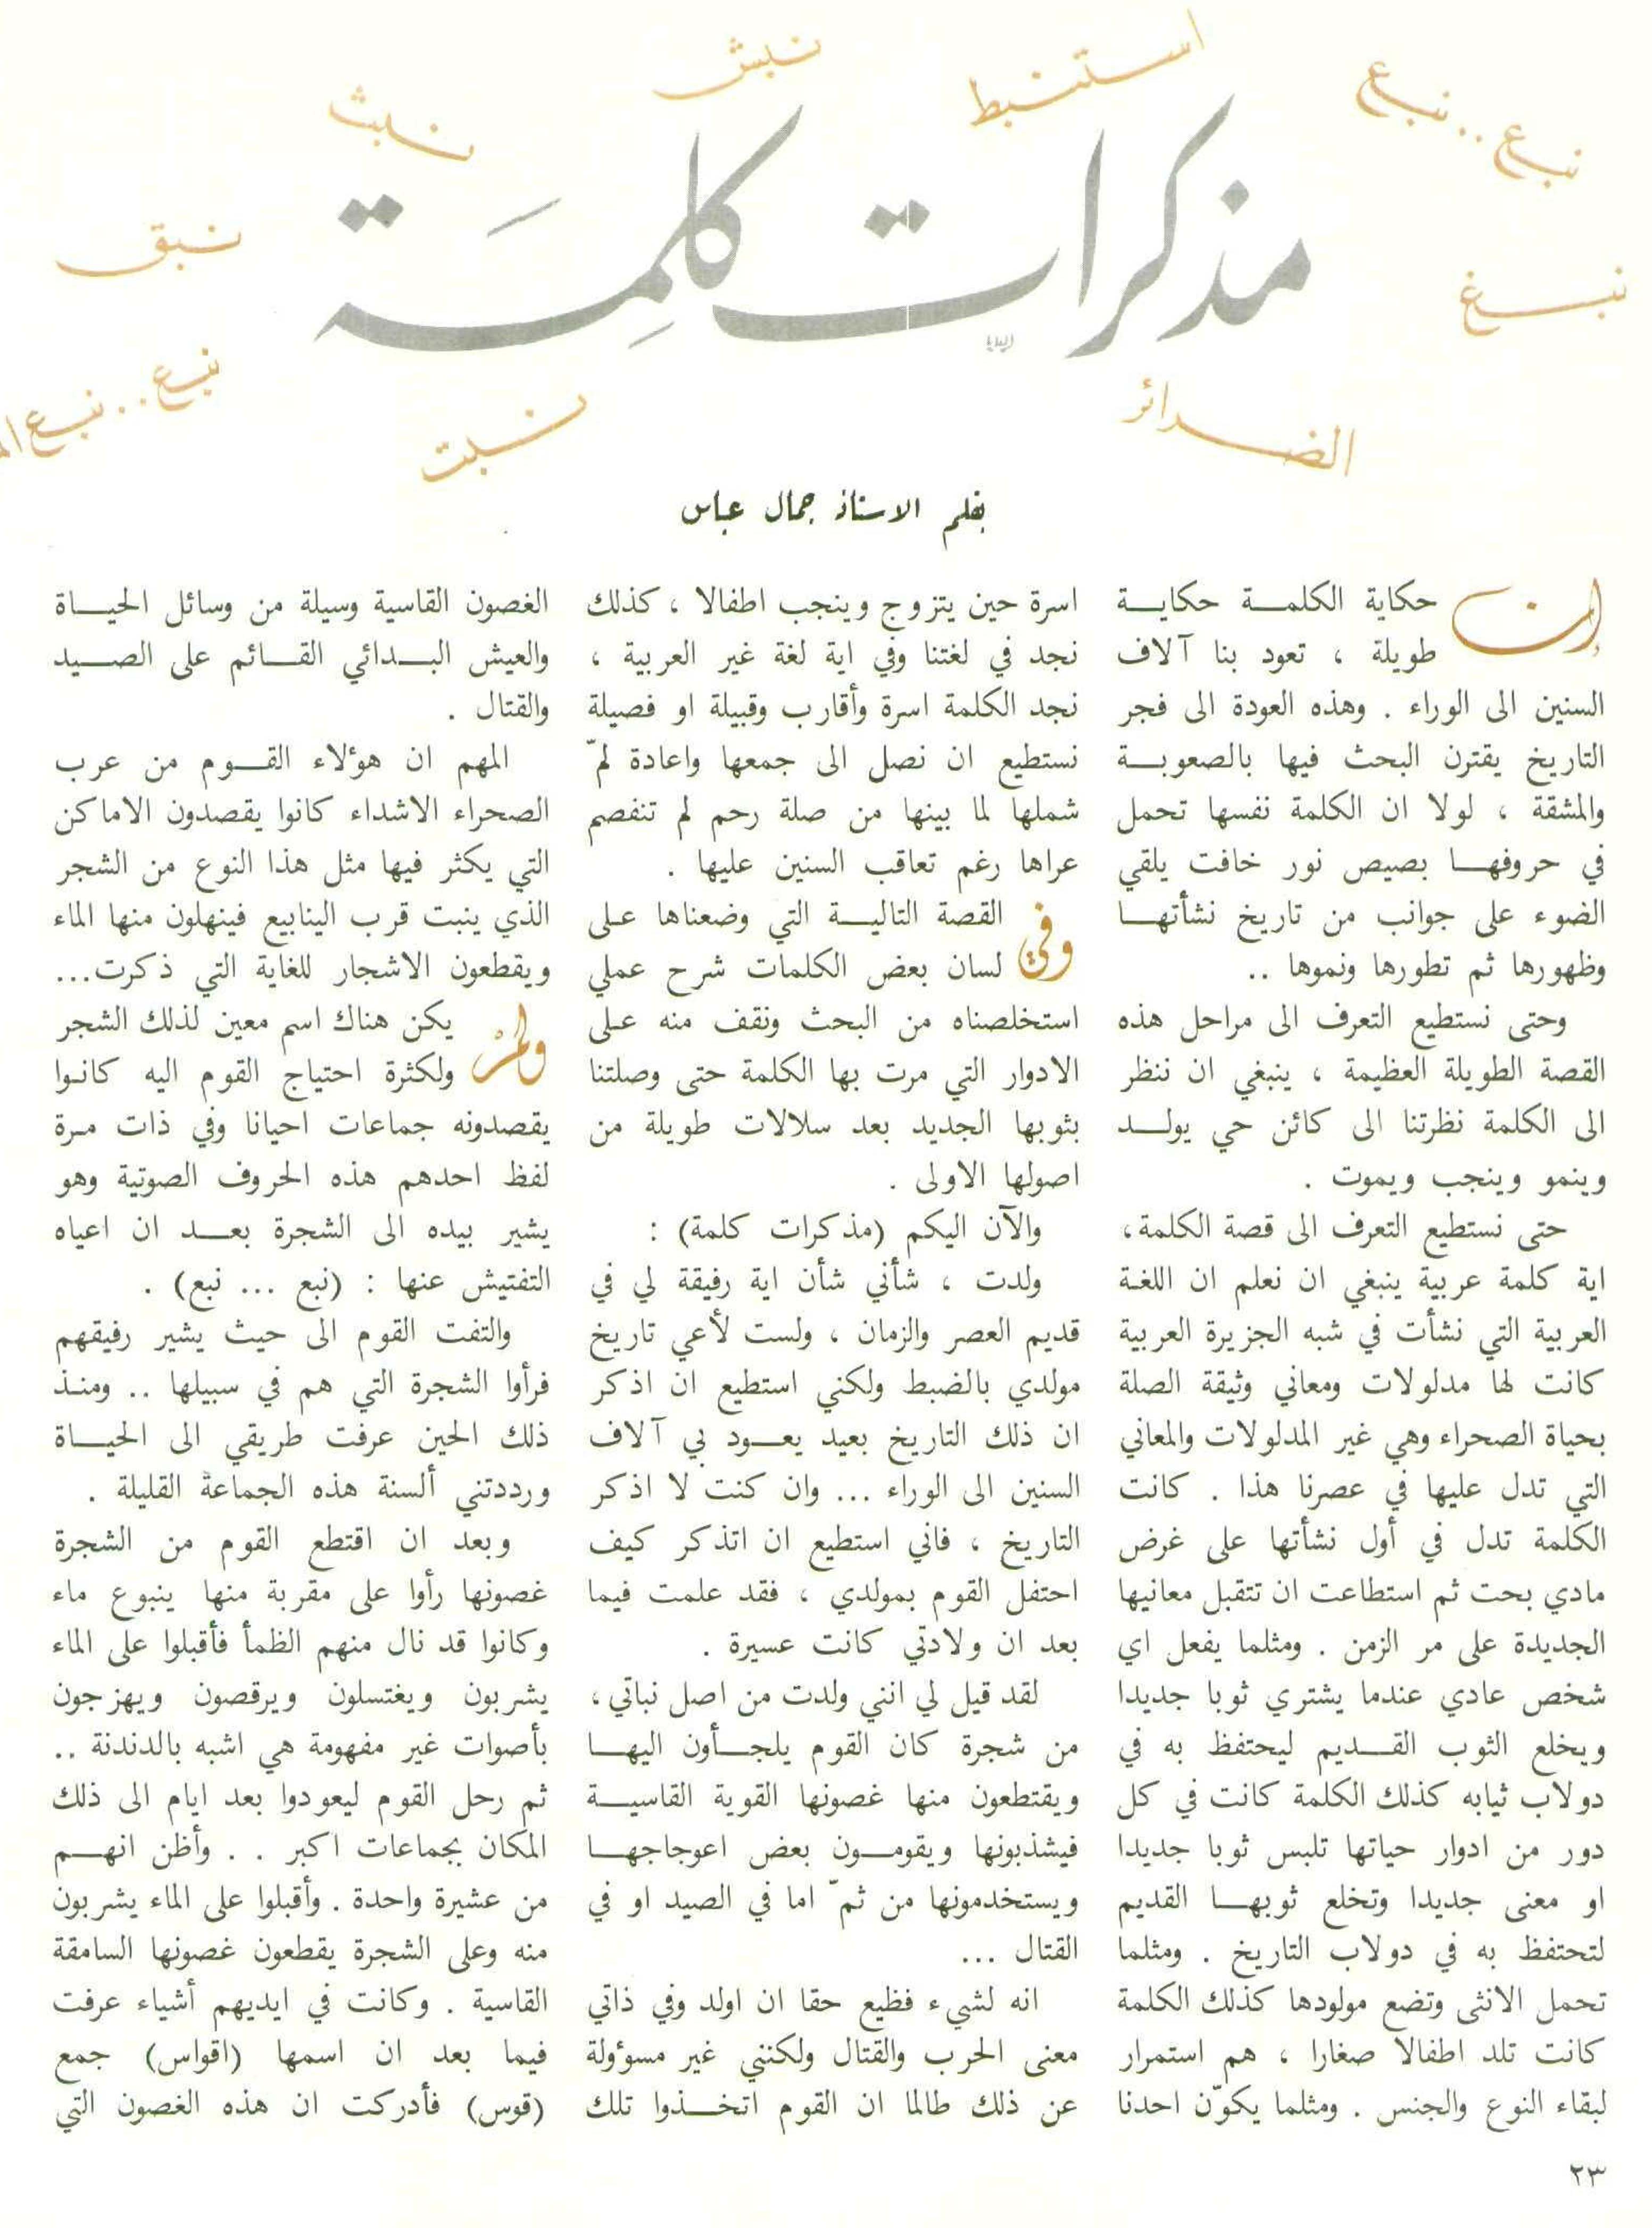 استنبط
نبش
نبث
نبع .. نبع
نبق
نبغ
مذكرات كلمة
نبع .. نبع
نبت
الضرائر
بقلم الاستاذ جمال عباس
إن حكاية الكلمة حكاية
طويلة ، تعود بنا آلاف
السنين الى الوراء . وهذه العودة الى فجر
التاريخ يقترن البحث فيها بالصعوبة
والمشقة ، لولا ان الكلمة نفسها تحمل
في حروفها بصيص نور خافت يلقي
الضوء على جوانب من تاريخ نشأتها
وظهورها ثم تطورها ونموها ..
وحتى نستطيع التعرف الى مراحل هذه
القصة الطويلة العظيمة ، ينبغي ان ننظر
الى الكلمة نظرتنا الى كائن حي يولد
وينمو وينجب ويموت .
حتى نستطيع التعرف الى قصة الكلمة،
اية كلمة عربية ينبغي ان نعلم ان اللغة
العربية التي نشأت في شبه الجزيرة العربية
كانت لها مدلولات ومعاني وثيقة الصلة
بحياة الصحراء وهي غير المدلولات والمعاني
التي تدل عليها في عصرنا هذا . كانت
الكلمة تدل في أول نشأتها على غرض
مادي بحت ثم استطاعت ان تتقبل معانيها
الجديدة على مر الزمن . ومثلما يفعل اي
شخص عادي عندما يشتري ثوبا جديدا
ويخلع الثوب القديم ليحتفظ به في
دولاب ثيابه كذلك الكلمة كانت في كل
دور من ادوار حياتها تلبس ثوبا جديدا
او معنى جديدا وتخلع ثوبها القديم
لتحتفظ به في دولاب التاريخ . ومثلما
تحمل الانثى وتضع مولودها كذلك الكلمة
كانت تلد اطفالا صغارا ، هم استمرار
لبقاء النوع والجنس . ومثلما يكوّن احدنا
اسرة حين يتزوج وينجب اطفالا ، كذلك
نجد في لغتنا وفي اية لغة غير العربية ،
نجد الكلمة اسرة وأقارب وقبيلة او فصيلة
نستطيع ان نصل الى جمعها واعادة لمّ
شملها لما بينها من صلة رحم لم تنفصم
عراها رغم تعاقب السنين عليها .
وفي القصة التالية التي وضعناها على
لسان بعض الكلمات شرح عملي
استخلصناه من البحث ونقف منه على
الادوار التي مرت بها الكلمة حتى وصلتنا
بثوبها الجديد بعد سلالات طويلة من
اصولها الاولى .
والآن اليكم (مذكرات كلمة) :
ولدت ، شأني شأن اية رفيقة لي في
قديم العصر والزمان ، ولست لأعي تاريخ
مولدي بالضبط ولكني استطيع ان اذكر
ان ذلك التاريخ بعيد يعود بي آلاف
السنين الى الوراء ... وان كنت لا اذكر
التاريخ ، فاني استطيع ان اتذكر كيف
احتفل القوم بمولدي ، فقد علمت فيما
بعد ان ولادتي كانت عسيرة .
لقد قيل لي انني ولدت من اصل نباتي،
من شجرة كان القوم يلجأون اليها
ويقتطعون منها غصونها القوية القاسية
فيشذبونها ويقومون بعض اعوجاجها
ويستخدمونها من ثمّ اما في الصيد او في
القتال ...
انه لشيء فظيع حقا ان اولد وفي ذاتي
معنى الحرب والقتال ولكنني غير مسؤولة
عن ذلك طالما ان القوم اتخذوا تلك
الغصون القاسية وسيلة من وسائل الحياة
والعيش البدائي القائم على الصيد
والقتال .
المهم ان هؤلاء القوم من عرب
الصحراء الاشداء كانوا يقصدون الاماكن
التي يكثر فيها مثل هذا النوع من الشجر
الذي ينبت قرب الينابيع فينهلون منها الماء
ويقطعون الاشجار للغاية التي ذكرت...
ولم يكن هناك اسم معين لذلك الشجر
ولكثرة احتياج القوم اليه كانوا
يقصدونه جماعات احيانا وفي ذات مرة
لفظ احدهم هذه الحروف الصوتية وهو
يشير بيده الى الشجرة بعد ان اعياه
التفتيش عنها : (نبع ... نبع) .
والتفت القوم الى حيث يشير رفيقهم
فرأوا الشجرة التي هم في سبيلها .. ومنذ
ذلك الحين عرفت طريقي الى الحياة
ورددتني ألسنة هذه الجماعة القليلة .
وبعد ان اقتطع القوم من الشجرة
غصونها رأوا على مقربة منها ينبوع ماء
وكانوا قد نال منهم الظمأ فأقبلوا على الماء
يشربون ويغتسلون ويرقصون ويهزجون
بأصوات غير مفهومة هي اشبه بالدندنة ..
ثم رحل القوم ليعودوا بعد ايام الى ذلك
المكان بجماعات اكبر . . وأظن انهم
من عشيرة واحدة . وأقبلوا على الماء يشربون
منه وعلى الشجرة يقطعون غصونها السامقة
القاسية . وكانت في ايديهم أشياء عرفت
فيما بعد ان اسمها (اقواس) جمع
(قوس) فأدركت ان هذه الغصون التي
٢٣